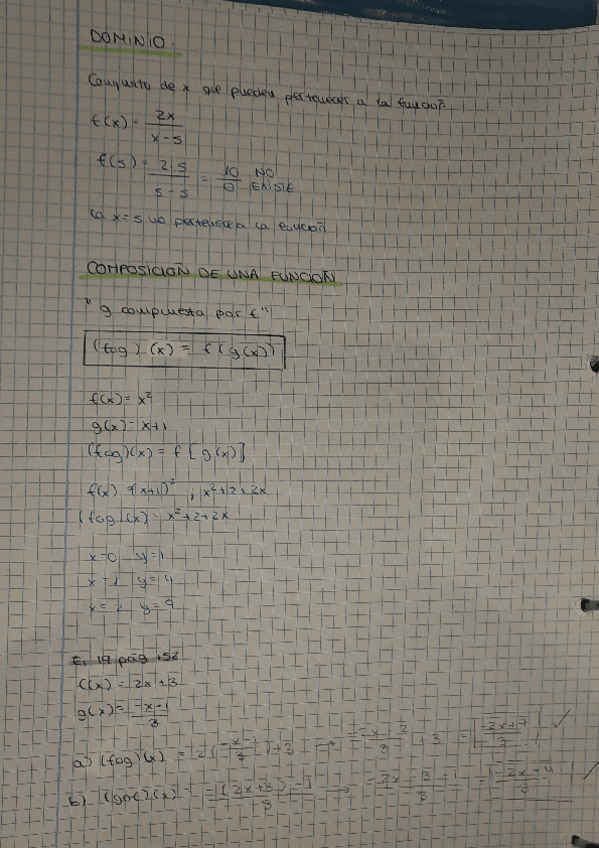 DOMINIO:
Conjunto de x que pueden pertenecer a la función
f(x) = 2x / x-5
f(5) = 2·5 / 5-5 = 10/0 NO EXISTE
la x=5 no pertenece a la función
COMPOSICIÓN DE UNA FUNCIÓN
"g compuesta por f"
(fog)(x) = f(g(x))
f(x) = x²
g(x) = x+1
(fog)(x) = f[g(x)]
f(x) (x+1)² , x²+2+2x
(fog)(x) = x²+2+2x
x=0 y=1
x=1 y=4
x=2 y=9
Ej 19 pág 152
f(x) = 2x+3
g(x) = -x-1 / 3
a) (fog)(x) = 2(-x-1 / 3)+3 → -2x-2 / 3 + 3 = -2x+7 / 3 ✓
b) (gof)(x) = -(2x+3)-1 / 3 → -2x-3-1 / 3 = -2x-4 / 3 ✓